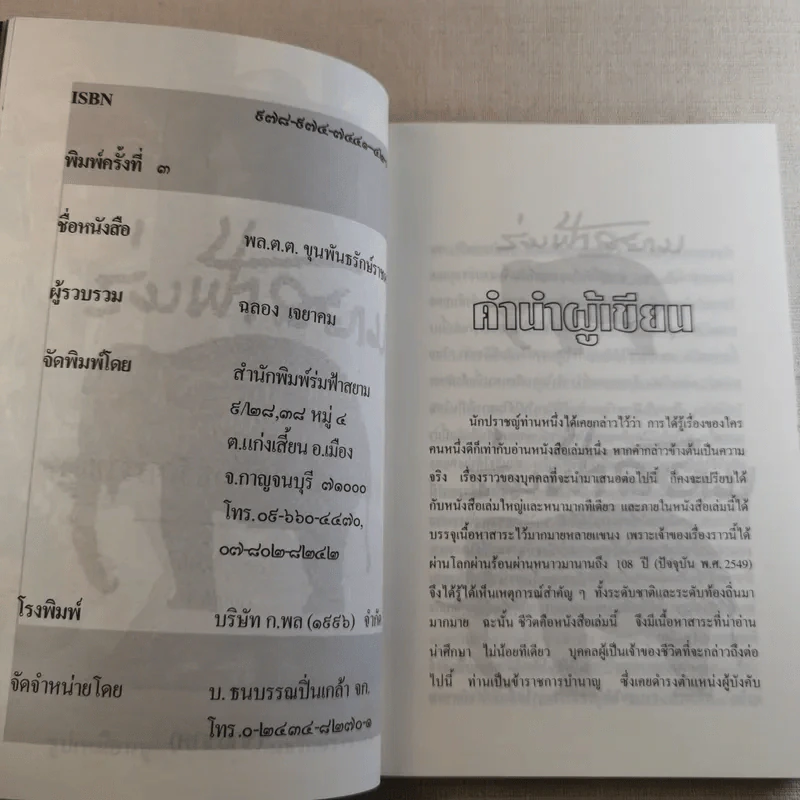 ISBN
๙๗๘-๙๗๔-๗๔๔๑-๔๒-
พิมพ์ครั้งที่ ๓
ชื่อหนังสือ
พล.ต.ต. ขุนพันธรักษ์ราช
ผู้รวบรวม
ฉลอง เจยาคม
จัดพิมพ์โดย
สำนักพิมพ์ร่มฟ้าสยาม
๙/๒๘,๓๘ หมู่ ๔
ต.แก่งเสี้ยน อ.เมือง
จ.กาญจนบุรี ๗๑๐๐๐
โทร.๐๙-๖๖๐-๔๔๗๐,
๐๗-๘๐๒-๘๒๔๒
โรงพิมพ์
บริษัท ก.พล (๑๙๙๖) จำกัด
จัดจำหน่ายโดย
บ. ธนบรรณปิ่นเกล้า จก.
โทร.๐-๒๔๓๔-๘๒๗๐-๑
คำนำผู้เขียน
นักปราชญ์ท่านหนึ่งได้เคยกล่าวไว้ว่า การได้รู้เรื่องของใคร
คนหนึ่งดีก็เท่ากับอ่านหนังสือเล่มหนึ่ง หากคำกล่าวข้างต้นเป็นความ
จริง เรื่องราวของบุคคลที่จะนำมาเสนอต่อไปนี้ ก็คงจะเปรียบได้
กับหนังสือเล่มใหญ่และหนามากทีเดียว และภายในหนังสือเล่มนี้ได้
บรรจุเนื้อหาสาระไว้มากมายหลายแขนง เพราะเจ้าของเรื่องราวนี้ได้
ผ่านโลกผ่านร้อนผ่านหนาวมานานถึง 108 ปี (ปัจจุบัน พ.ศ. 2549)
จึงได้รู้ได้เห็นเหตุการณ์สำคัญ ๆ ทั้งระดับชาติและระดับท้องถิ่นมา
มากมาย ฉะนั้น ชีวิตคือหนังสือเล่มนี้ จึงมีเนื้อหาสาระที่น่าอ่าน
น่าศึกษา ไม่น้อยทีเดียว บุคคลผู้เป็นเจ้าของชีวิตที่จะกล่าวถึงต่อ
ไปนี้ ท่านเป็นข้าราชการบำนาญ ซึ่งเคยดำรงตำแหน่งผู้บังคับ